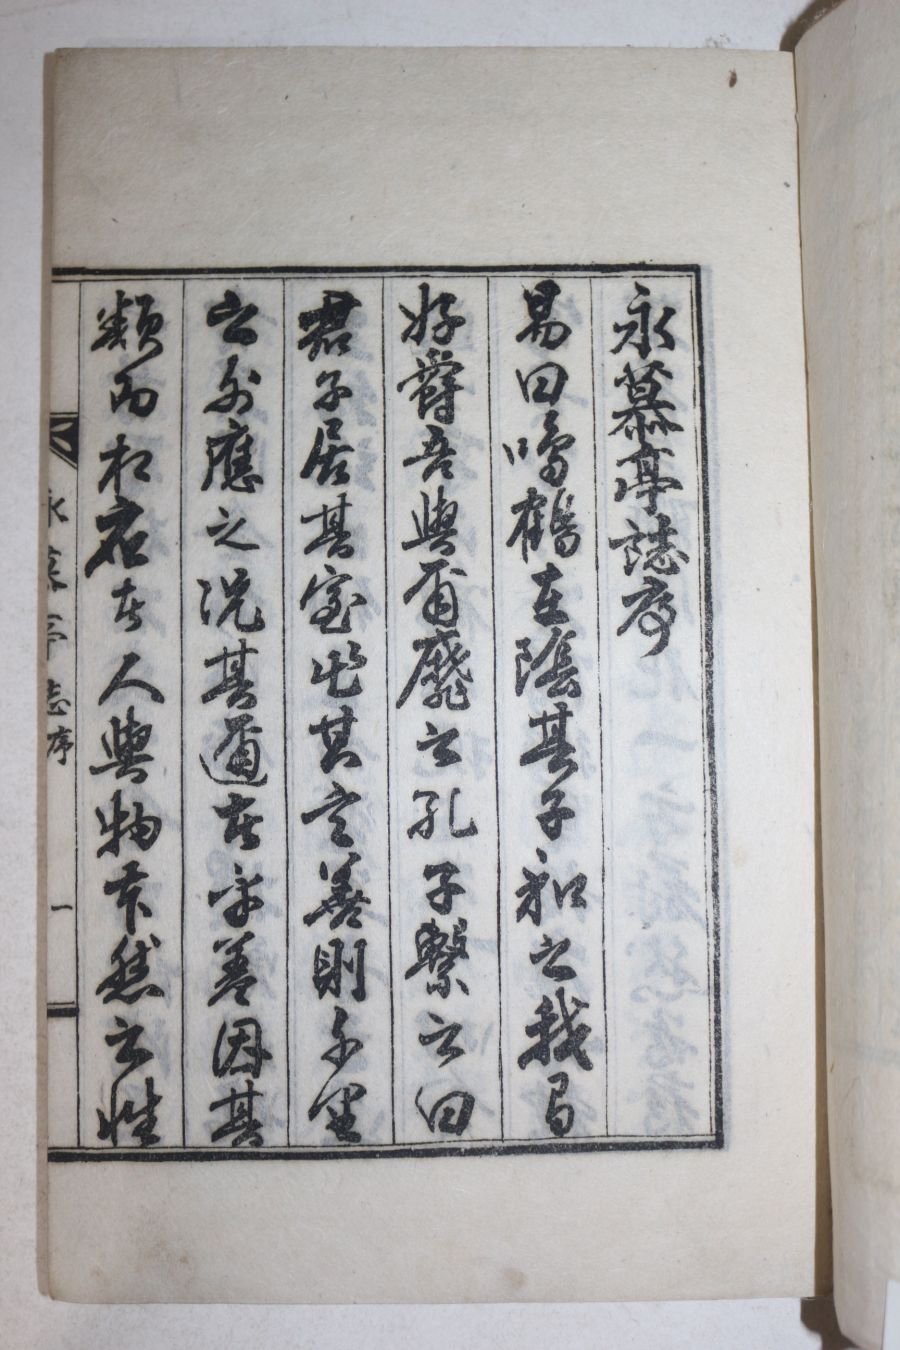 永慕亭誌序
易曰鳴鶴在陰其子和之我有
好爵吾與爾靡之孔子繫之曰
君子居其室出其言善則千里
之外應之況其邇者乎盖因其
類而相者人與物本然之性
永慕亭誌序 一